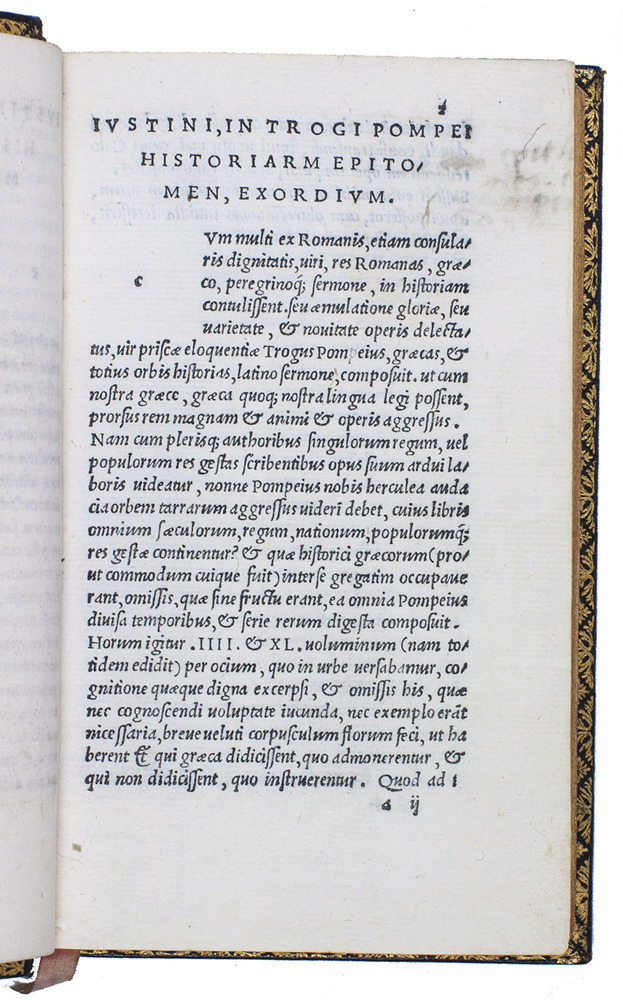 IVSTINI, IN TROGI POMPEI
HISTORIARM EPITO/
MEN, EXORDIVM.
c
Vm multi ex Romanis, etiam consula/
ris dignitatis, uiri, res Romanas, græ/
co, peregrinoq; sermone, in historiam
contulissent. seu æmulatione gloriæ, seu
uarietate, & nouitate operis delecta/
tus, uir priscæ eloquentiæ Trogus Pompeius, græcas, &
totius orbis historias, latino sermone, composuit. ut cum
nostra græce, græca quoq; nostra lingua legi possent,
prorsus rem magnam & animi & operis aggressus.
Nam cum plerisq; authoribus singulorum regum, uel
populorum res gestas scribentibus opus suum ardui la/
boris uideatur, nonne Pompeius nobis herculea auda
cia orbem tarrarum aggressus uideri debet, cuius libris
omnium sæculorum, regum, nationum, populorumq;
res gestæ continentur? & quæ historici græcorum (pro/
ut commodum cuique fuit) inter se gregatim occupaue
rant, omissis, quæ sine fructu erant, ea omnia Pompeius
diuisa temporibus, & serie rerum digesta composuit.
Horum igitur .IIII. & XL. uoluminum (nam to/
tidem edidit) per ocium, quo in urbe uersabamur, co/
gnitione quæque digna excerpsi, & omissis his, quæ
nec cognoscendi uoluptate iucunda, nec exemplo erãt
nicessaria, breue ueluti corpusculum florum feci, ut ha
berent & qui græca didicissent, quo admonerentur, &
qui non didicissent, quo instruerentur. Quod ad t
a ij